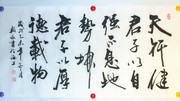 天行健
君子以自
強不息地
勢坤
君子以厚
德載物